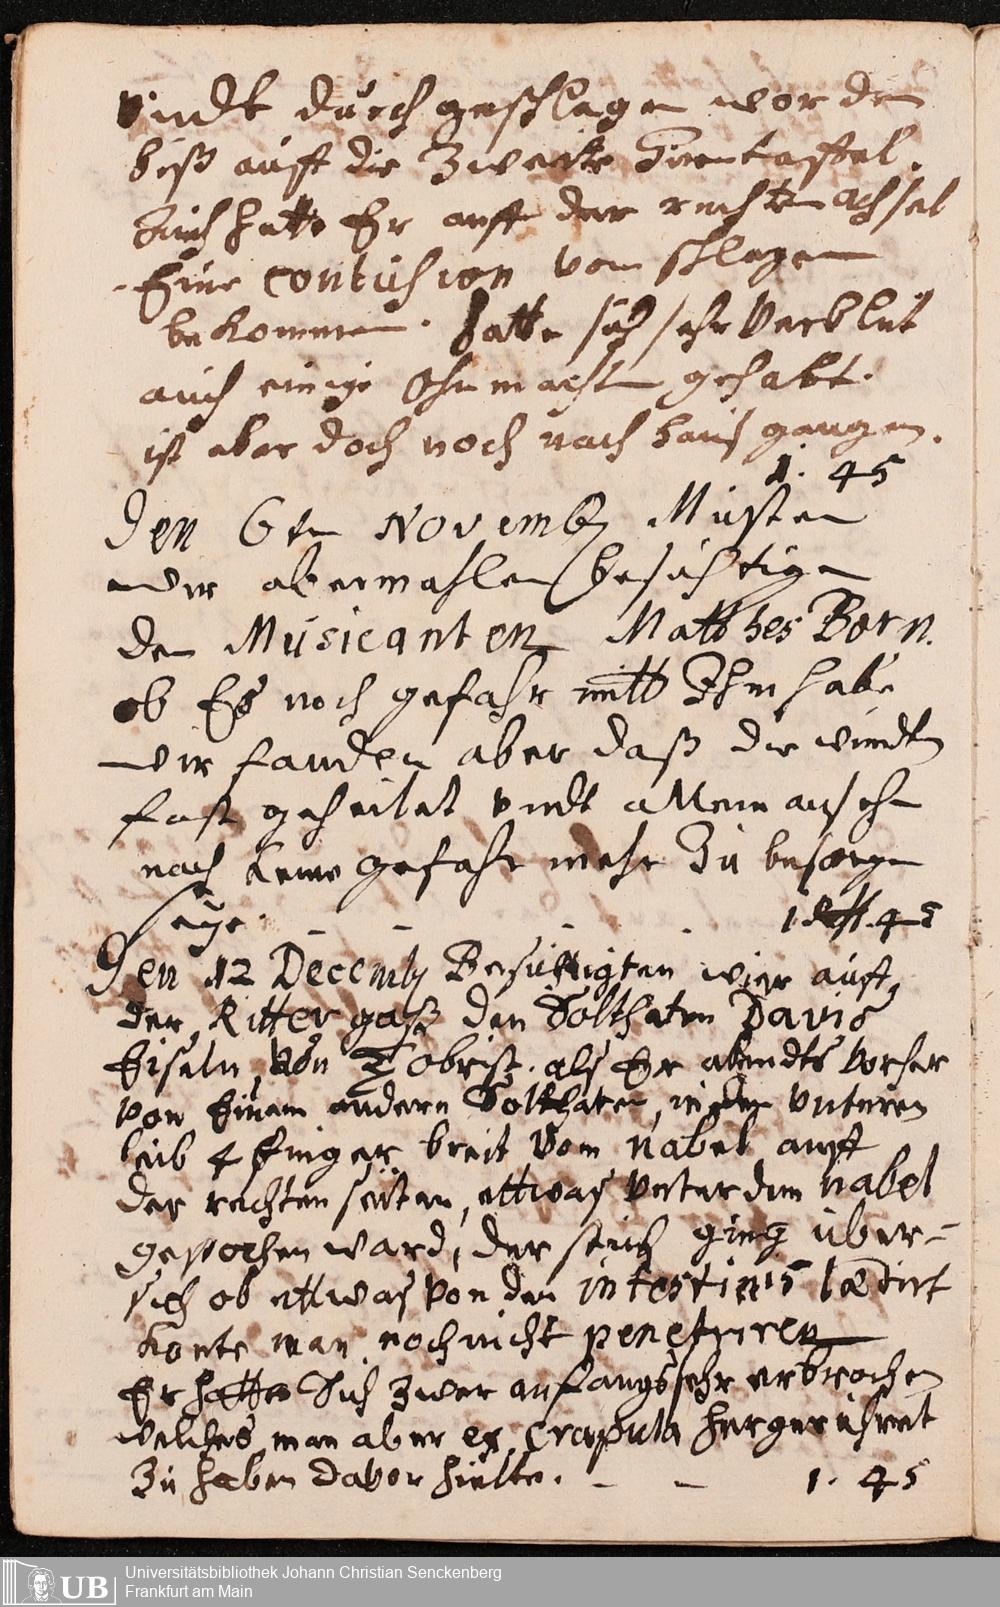 vndt durch geschlagen worden
biß auff die Zweite Hirntaffel.
Auch hatte Er auff der rechten achsel
Eine contusion vom schlagen
bekommen. hatte sich sehr Verblut
auch einige Ohnmachten gehabt.
ist aber doch noch nach hauß gangen.
1. 45
Den 6ten Novemb Musten
wir abermahlen besichtigen
den Musicanten Matthes Born.
ob Es noch gefahr mitt Ihm habe
wir fanden aber daß die wundten
fast geheilet vndt allem ansehn
nach keine gefahr mehr Zu besorgen
seye. - - - - 1. 45
Den 12 Decemb Besichtigten wier auff
der Ritter gaß den Solthaten Davis
Eiseln, von Tobrist. als Er abendts Vorher
von Einem andern Solthaten, in den Vnteren
leib 4 finger breit Vom nabel auff
der rechten seiten, ettwas Vnter dem nabel
gestochen ward, der stich ging uber-
sich ob ettwas von den intestinis lædirt
konte man noch nicht penetriren
Er hatte Sich zwar anfangs sehr erbrochen
welches man aber ex crapula hergerühret
Zu haben davor hielte. - - 1. 45
Universitätsbibliothek Johann Christian Senckenberg
UB Frankfurt am Main